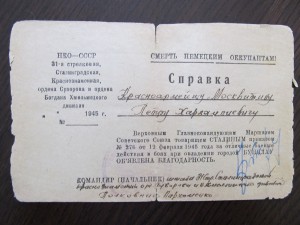 НКО—СССР
СМЕРТЬ НЕМЕЦКИМ ОККУПАНТАМ!
81-я стрелковая,
Сталинградская,
Краснознаменная,
ордена Суворова и ордена
Богдана Хмельницкого
дивизия
" " 1945 г.
№
Справка
Красноармейцу Москвитину
Петру Харлампиевичу
Верховным Главнокомандующим Маршалом
Советского Союза товарищем СТАЛИНЫМ приказом
№ 276 от 13 февраля 1945 года за отличные боевые
действия в боях при овладении городом БУДАПЕШТ
ОБ'ЯВЛЕНА БЛАГОДАРНОСТЬ.
КОМАНДИР (НАЧАЛЬНИК)